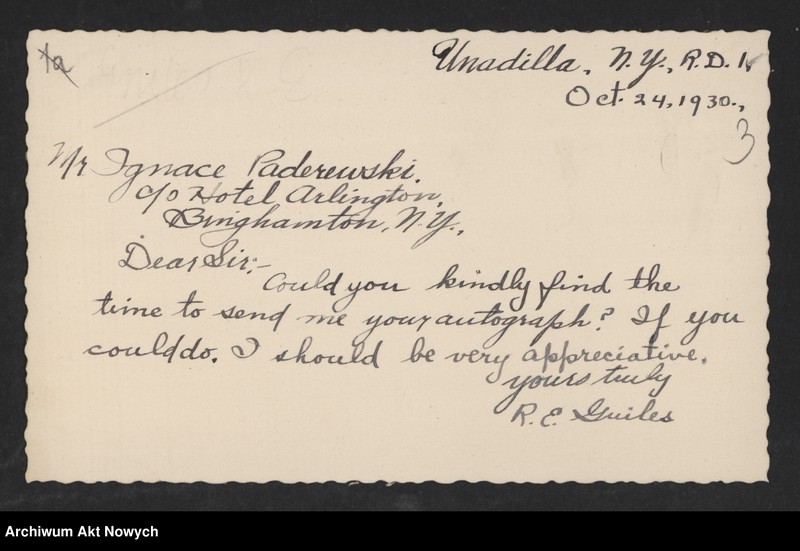 1a
Unadilla, N.Y., R.D. 1.
Oct. 24, 1930.,
3
Mr Ignace Paderewski.
c/o Hotel Arlington,
Binghamton, N.Y.,
Dear Sir:-
Could you kindly find the
time to send me your autograph? If you
could do. I should be very appreciative.
yours truly
R. E. Guiles
Archiwum Akt Nowych